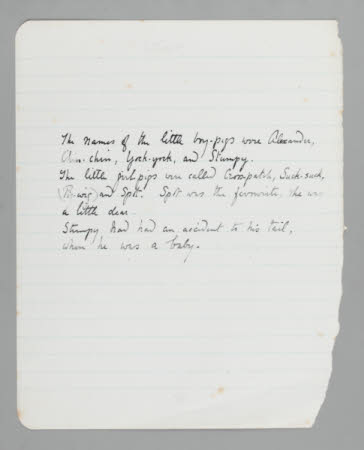 The names of the little boy-pigs were Alexander,
Chin-chin, Yock-yock, and Stumpy.
The little girl pigs were called Cross-patch, Suck-suck,
and Spot. Spot was the favourite, she was
a little dear.
Stumpy had had an accident to his tail,
when he was a baby.